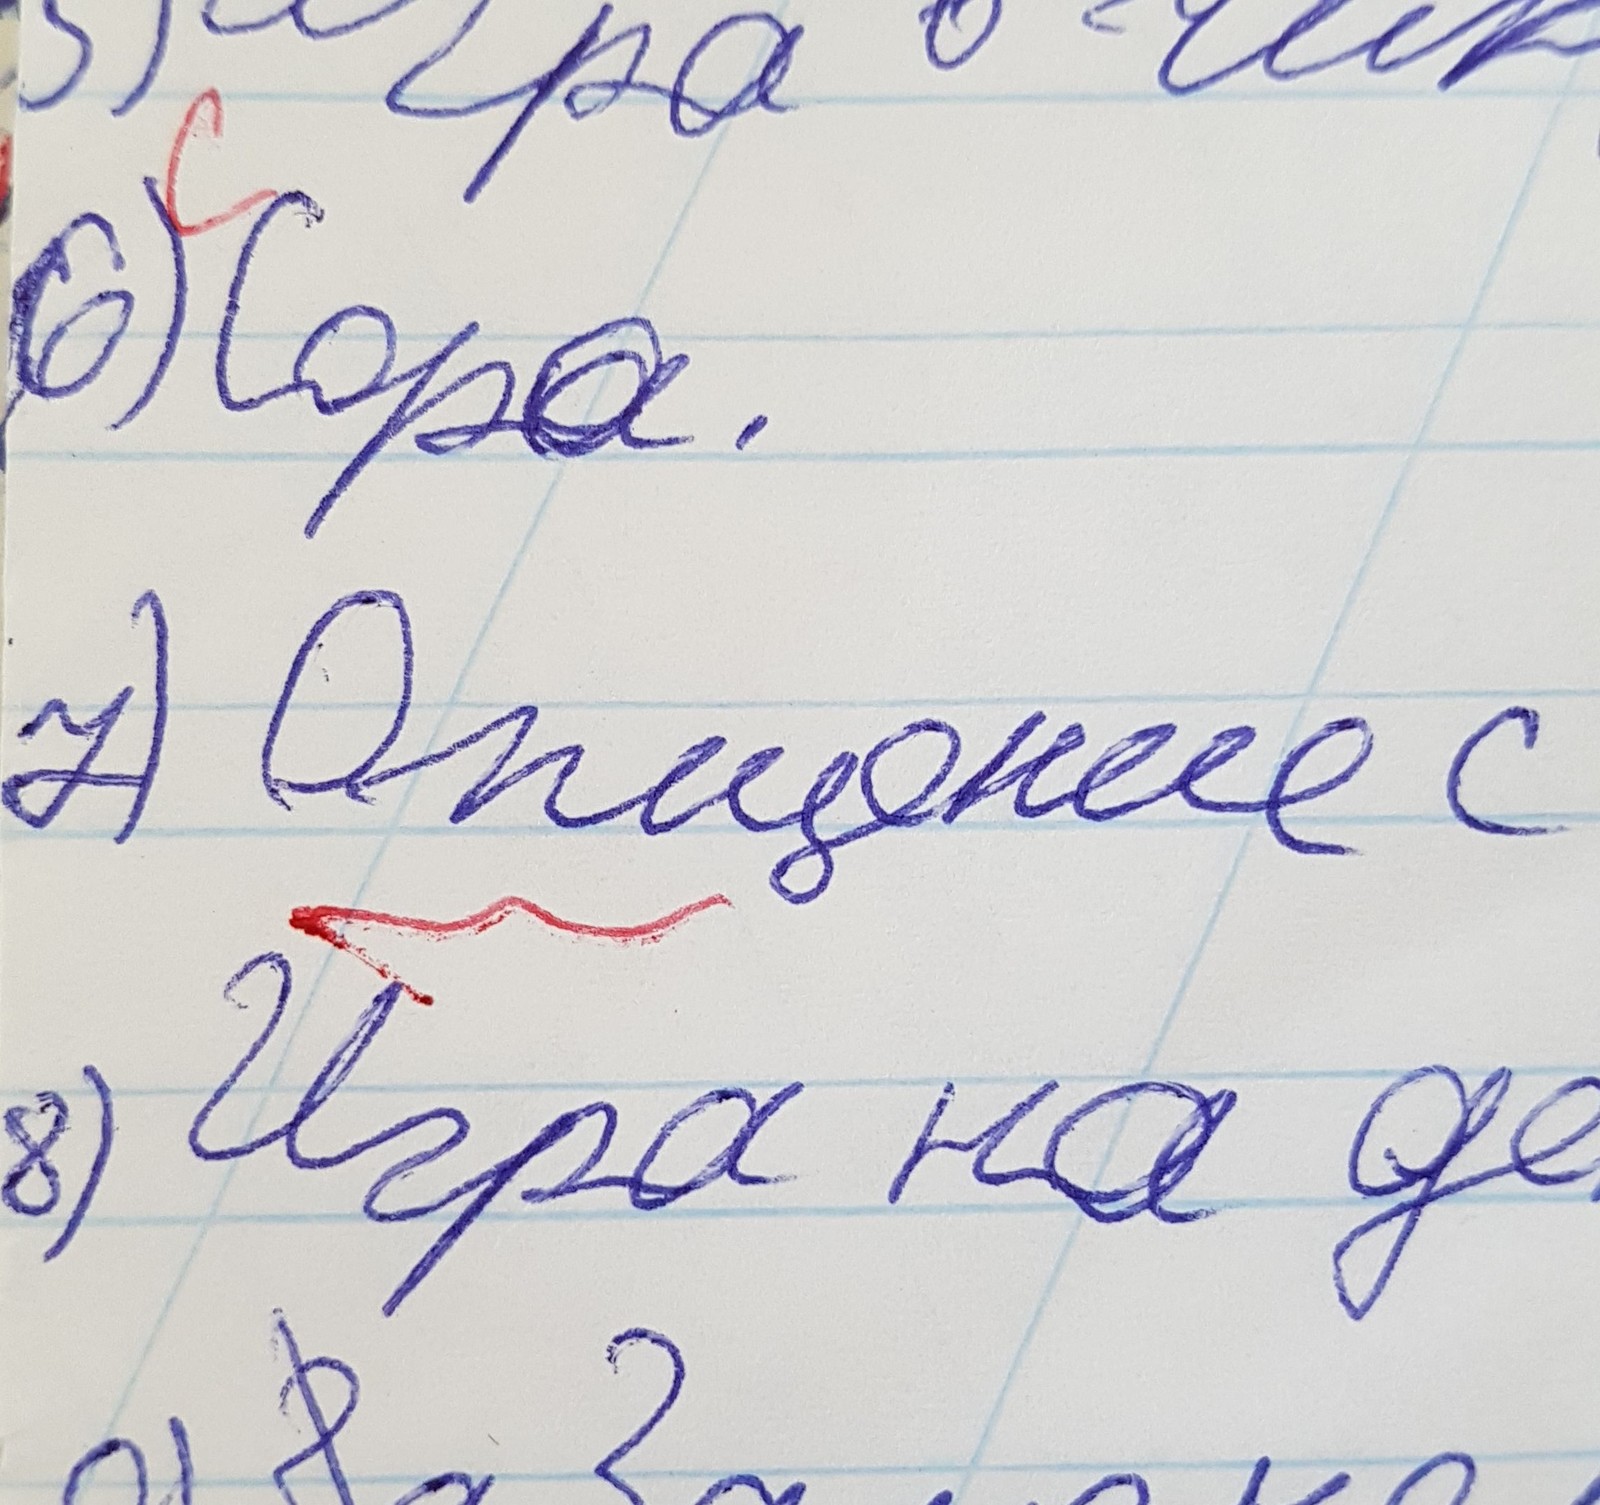 5) Игра в
6) Сора.
7) Опщение с
8) Игра на де